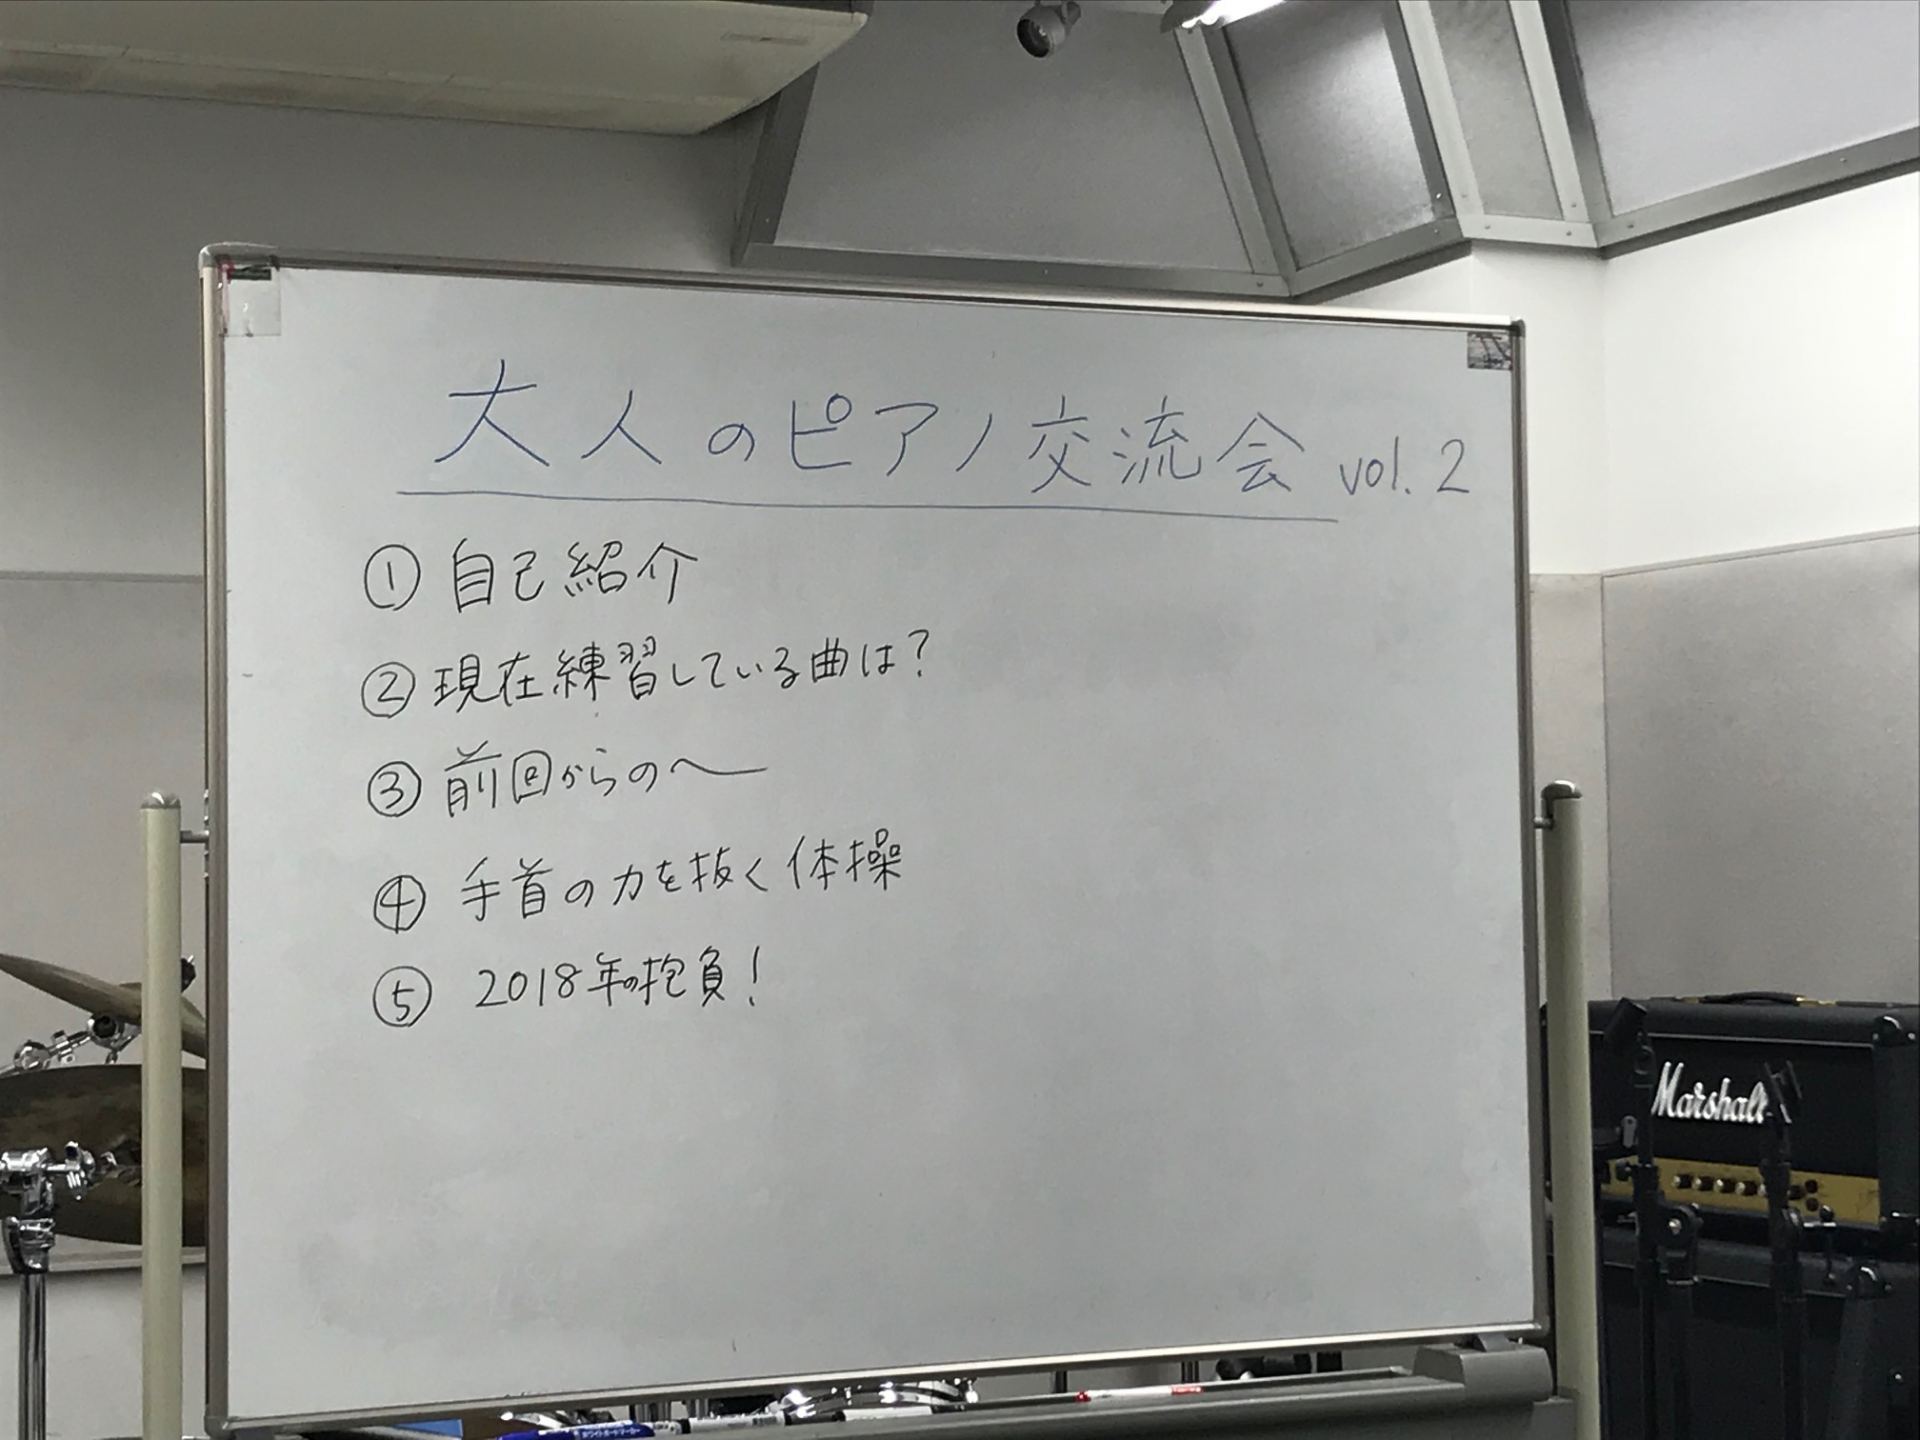 大人のピアノ交流会 vol.2
① 自己紹介
② 現在練習している曲は?
③ 前回からの〜
④ 手首の力を抜く体操
⑤ 2018年の抱負!
Marshall